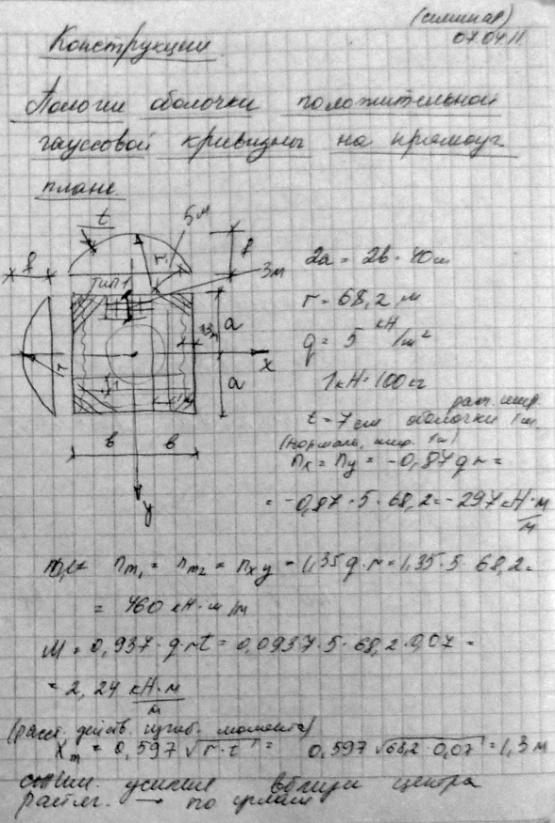 (семинар)
07.04.11
Конструкции
Пологие оболочки положительной
гауссовой кривизны на прямоуг
плане
t
5 м
f
r
3 м
f
тип 1
a
x
a
r
в в
y
2a = 2b = 40 м
r = 68,2 м
q = 5 кН/м²
1 кН = 100 кг
t = 7 см оболочки 1 м.
nx = ny = -0,87 q r =
= -0,87 · 5 · 68,2 = -297 кН·м/м
nm₁ = nm₂ = nxy = 1,35 q · r = 1,35 · 5 · 68,2 =
= 460 кН·м/м
M = 0,937 · q r t = 0,0937 · 5 · 68,2 · 0,07 =
= 2,24 кН·м/м
(расст. действ. изгиб. момента)
Xm = 0,597 √r · t = 0,597 √68,2 · 0,07 = 1,3 м
сжим. усилие вблизи центра
растяг. → по углам